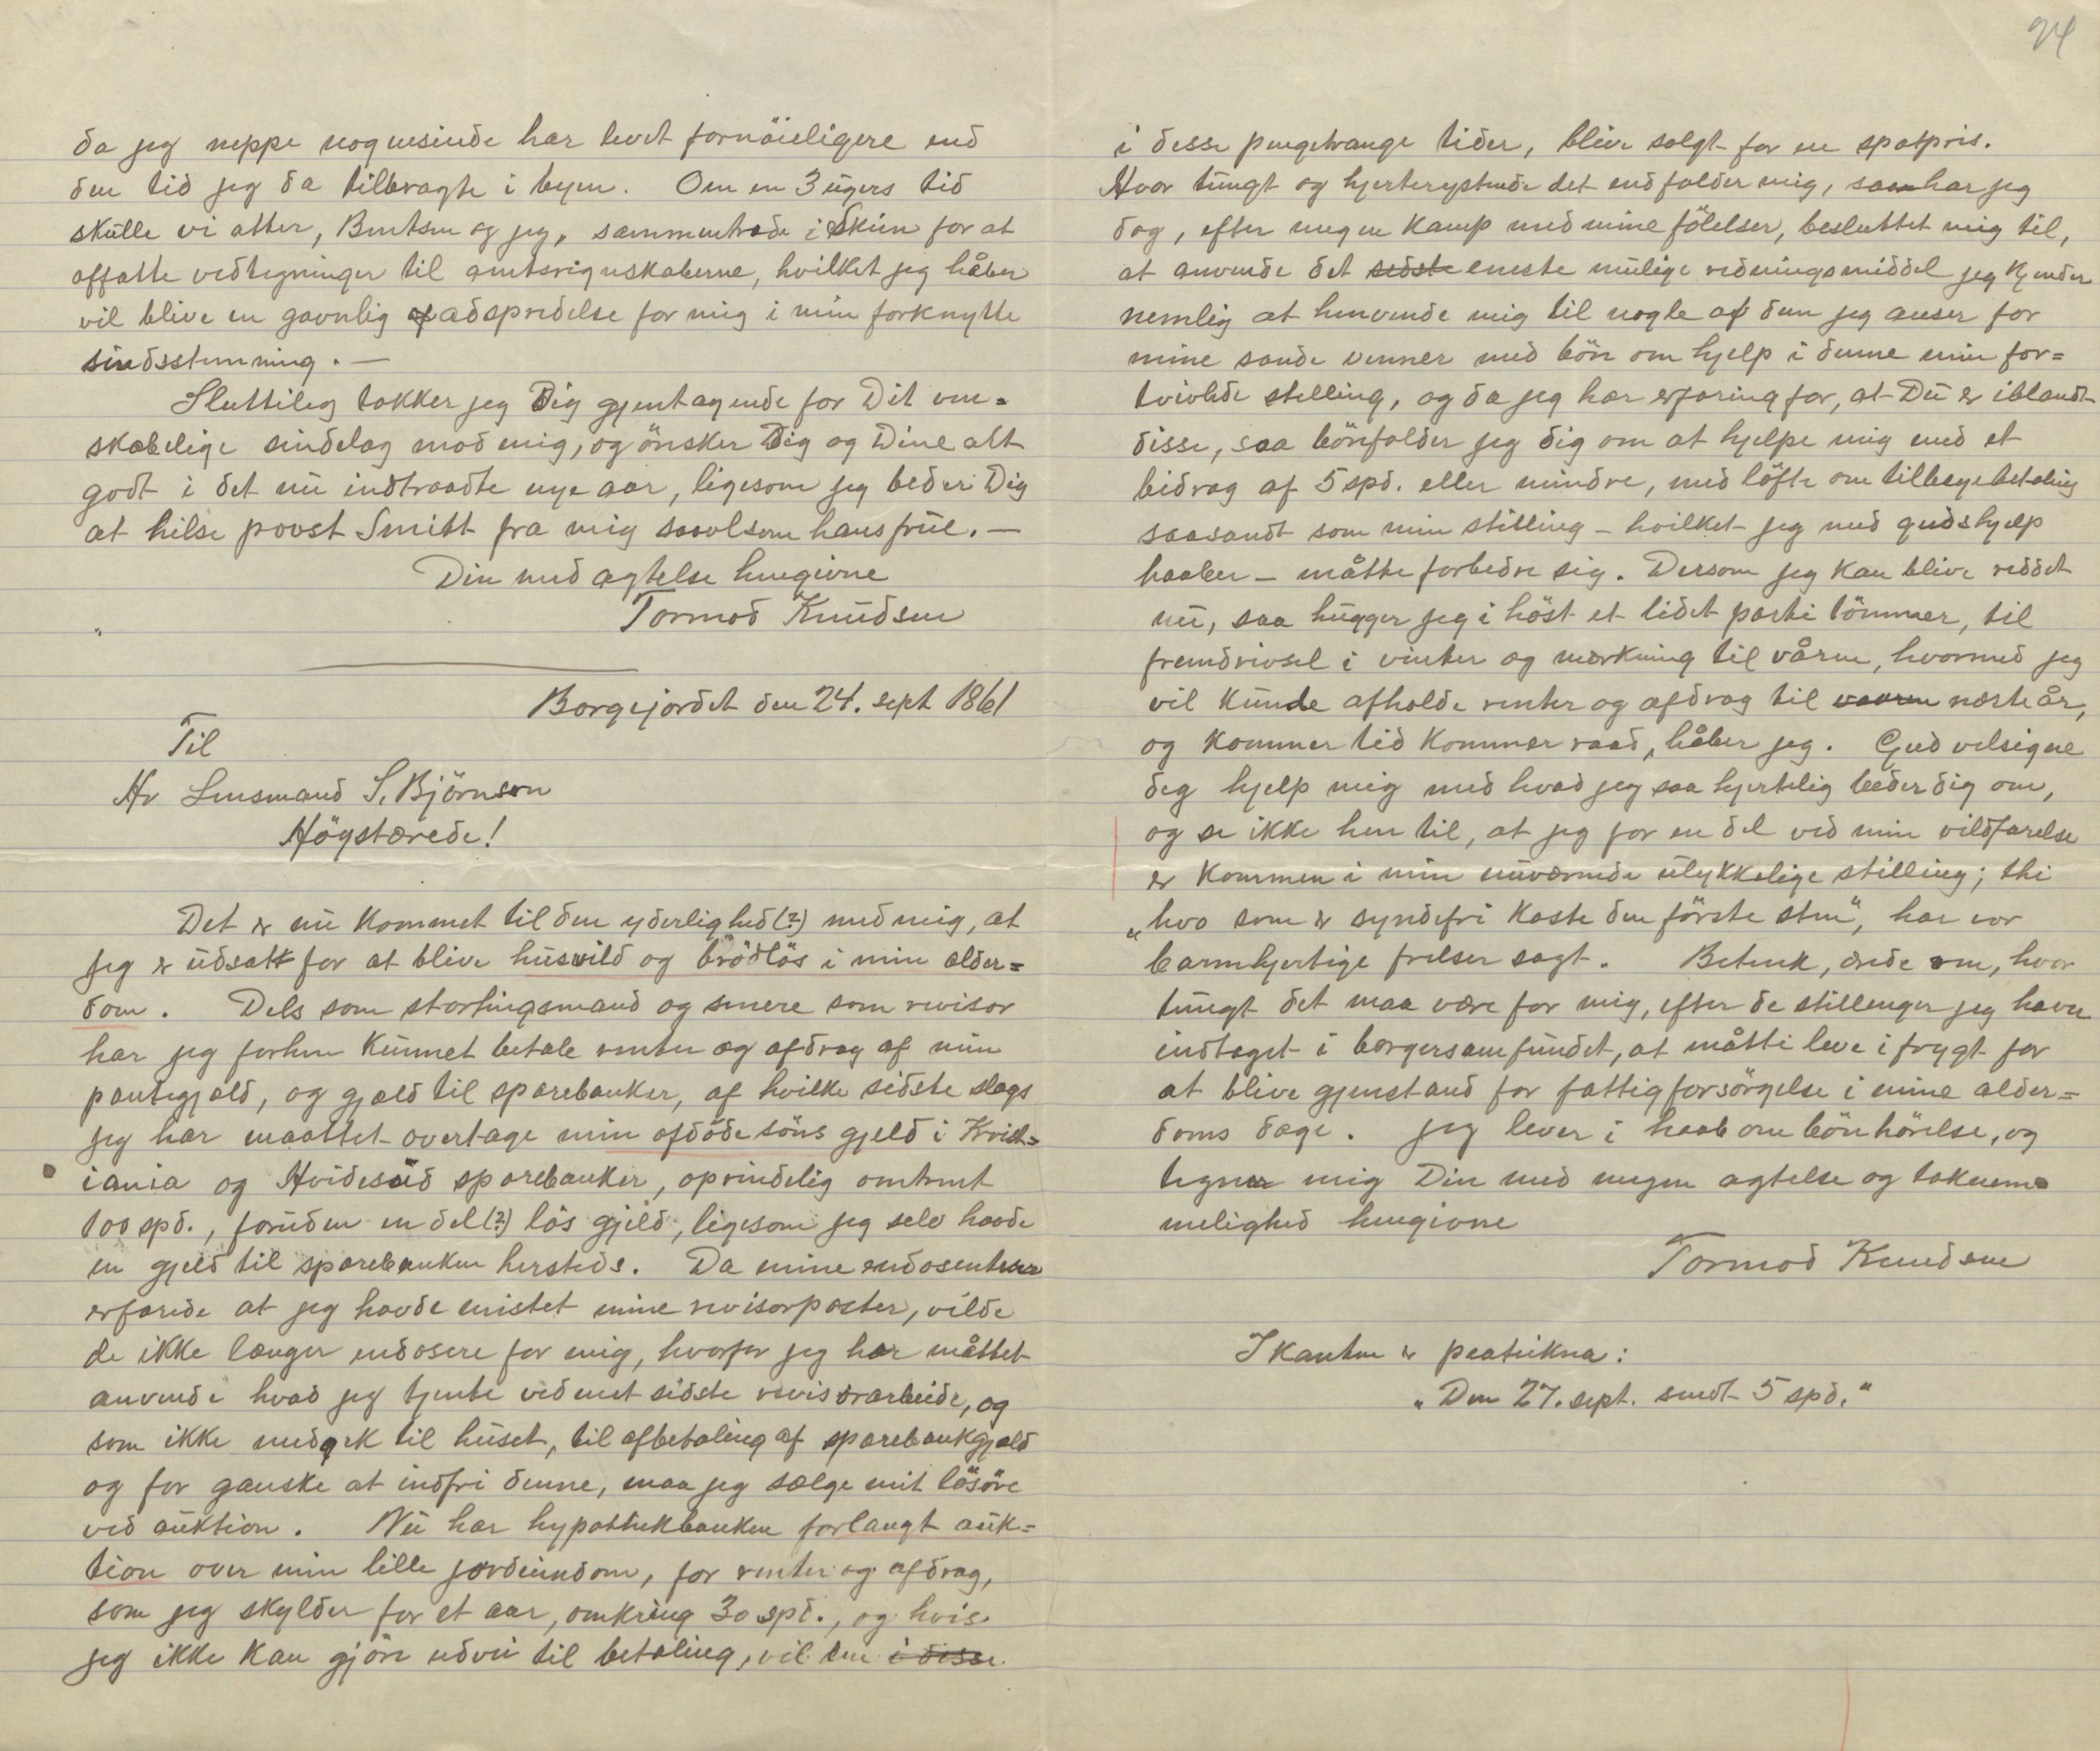 da jeg neppe nogensinde har levet fornöieligere end
den tid jeg da tilbragte i byen. Om en 3 ugers tid
skulle vi atter, Berntsen og jeg, sammentræde i Skien for at
affatte vedtegninger til amtsregnskaberne, hvilket jeg håber
vil blive en gavnlig adspredelse for mig i min forknytte
sindsstemning. —
Sluttileg takker jeg Dig gjentagende for Dit ven-
skabelige sindelag mod mig, og önsker Dig og Dine alt
godt i det nu indtraadte nye aar, ligesom jeg beder Dig
at hilse provst Smitt fra mig saavelsom hans frue. —
Din med agtelse hengivne
Tormod Knudsen
Borgejordet den 24. sept 1861
Til
Hr Lensmand S. Björnson
Högstærede!
Det er nu kommet til den yderlighed (?) med mig, at
jeg er udsatt for at blive husvild og brödlös i min alder=
dom. Dels som stortingsmand og senere som revisor
har jeg forhen kunnet betale renter og afdrag af min
pantegjæld, og gjæld til sparebanker, af hvilke sidste slags
jeg har maattet overtage min afdöde söns gjeld i Krist=
iania og Hvidesud sparebanker, oprindelig omtrent
100 spd., foruden en del (?) lös gjeld, ligesom jeg selv havde
en gjeld til sparebanken hersteds. Da mine endosenterer
erfarede at jeg havde mistet mine revisorposter, vilde
de ikke længer endosere for mig, hvorfor jeg har måttet
anvende hvad jeg tjente ved met sidste revisorarbeide, og
som ikke medgek til huset, til afbetaling af sparebankgjæld
og for ganske at indfri denne, maa jeg sælge mit lösöre
ved auktion. Nu har hypothekbanken forlangt auk=
tion over min lille jordeiendom, for renter og afdrag,
som jeg skylder for et aar, omkring 30 spd., og hvis
jeg ikke kan gjöre udvei til betaling, vil den i disse
94
i desse pengetrange tider, blive solgt for en spotpris.
Hvor tungt og hjerterystende det end falder mig, saa har jeg
dog, efter megen kamp med mine fölelser, besluttet mig til,
at anvende det sidste eneste mulige redningsmiddel jeg kjender
nemlig at henvende mig til nogle af dem jeg anser for
mine sande venner med bön om hjelp i denne min for=
tvivlede stelling, og da jeg har erfaring for, at Du er iblandt
disse, saa bönfalder jeg dig om at hjelpe mig med et
bidrag af 5 spd. eller mindre, med löfte om tilbagebetaling
saasandt som min stilling - hvilket jeg med guds hjelp
haaber - måtte forbedre sig. Dersom jeg kan blive reddet
nu, saa hugger jeg i höst et lidet parti tömmer, til
fremdrivsel i vinter og merkning til våren, hvormed jeg
vil kunde afholde renter og afdrag til vaaren næste år,
og kommer tid kommer raad, håber jeg. Gud velsigne
deg hjelp mig med hvad jeg saa hjertelig beder dig om,
og se ikke hen til, at jeg for en del ved min vildfarelse
er kommen i min nuværende ulykkelige stilling; thi
„hvo som er syndefri kaste den förste sten", har vor
barmhjertige frelser sagt. Betenk, ærede ven, hvor
tungt det maa være for mig, efter de stillenger jeg haver
indtaget i borgersamfundet, at måtte leve i frygt for
at blive gjenstand for fattigforsörgelse i mine alder=
doms dage. Jeg lever i haab om bönhörelse, og
tegner mig Din med megen agtelse og taknem=
melighed hengivne
Tormod Knudsen
I kanten er paateikna:
„Den 27. sept. sendt 5 spd."